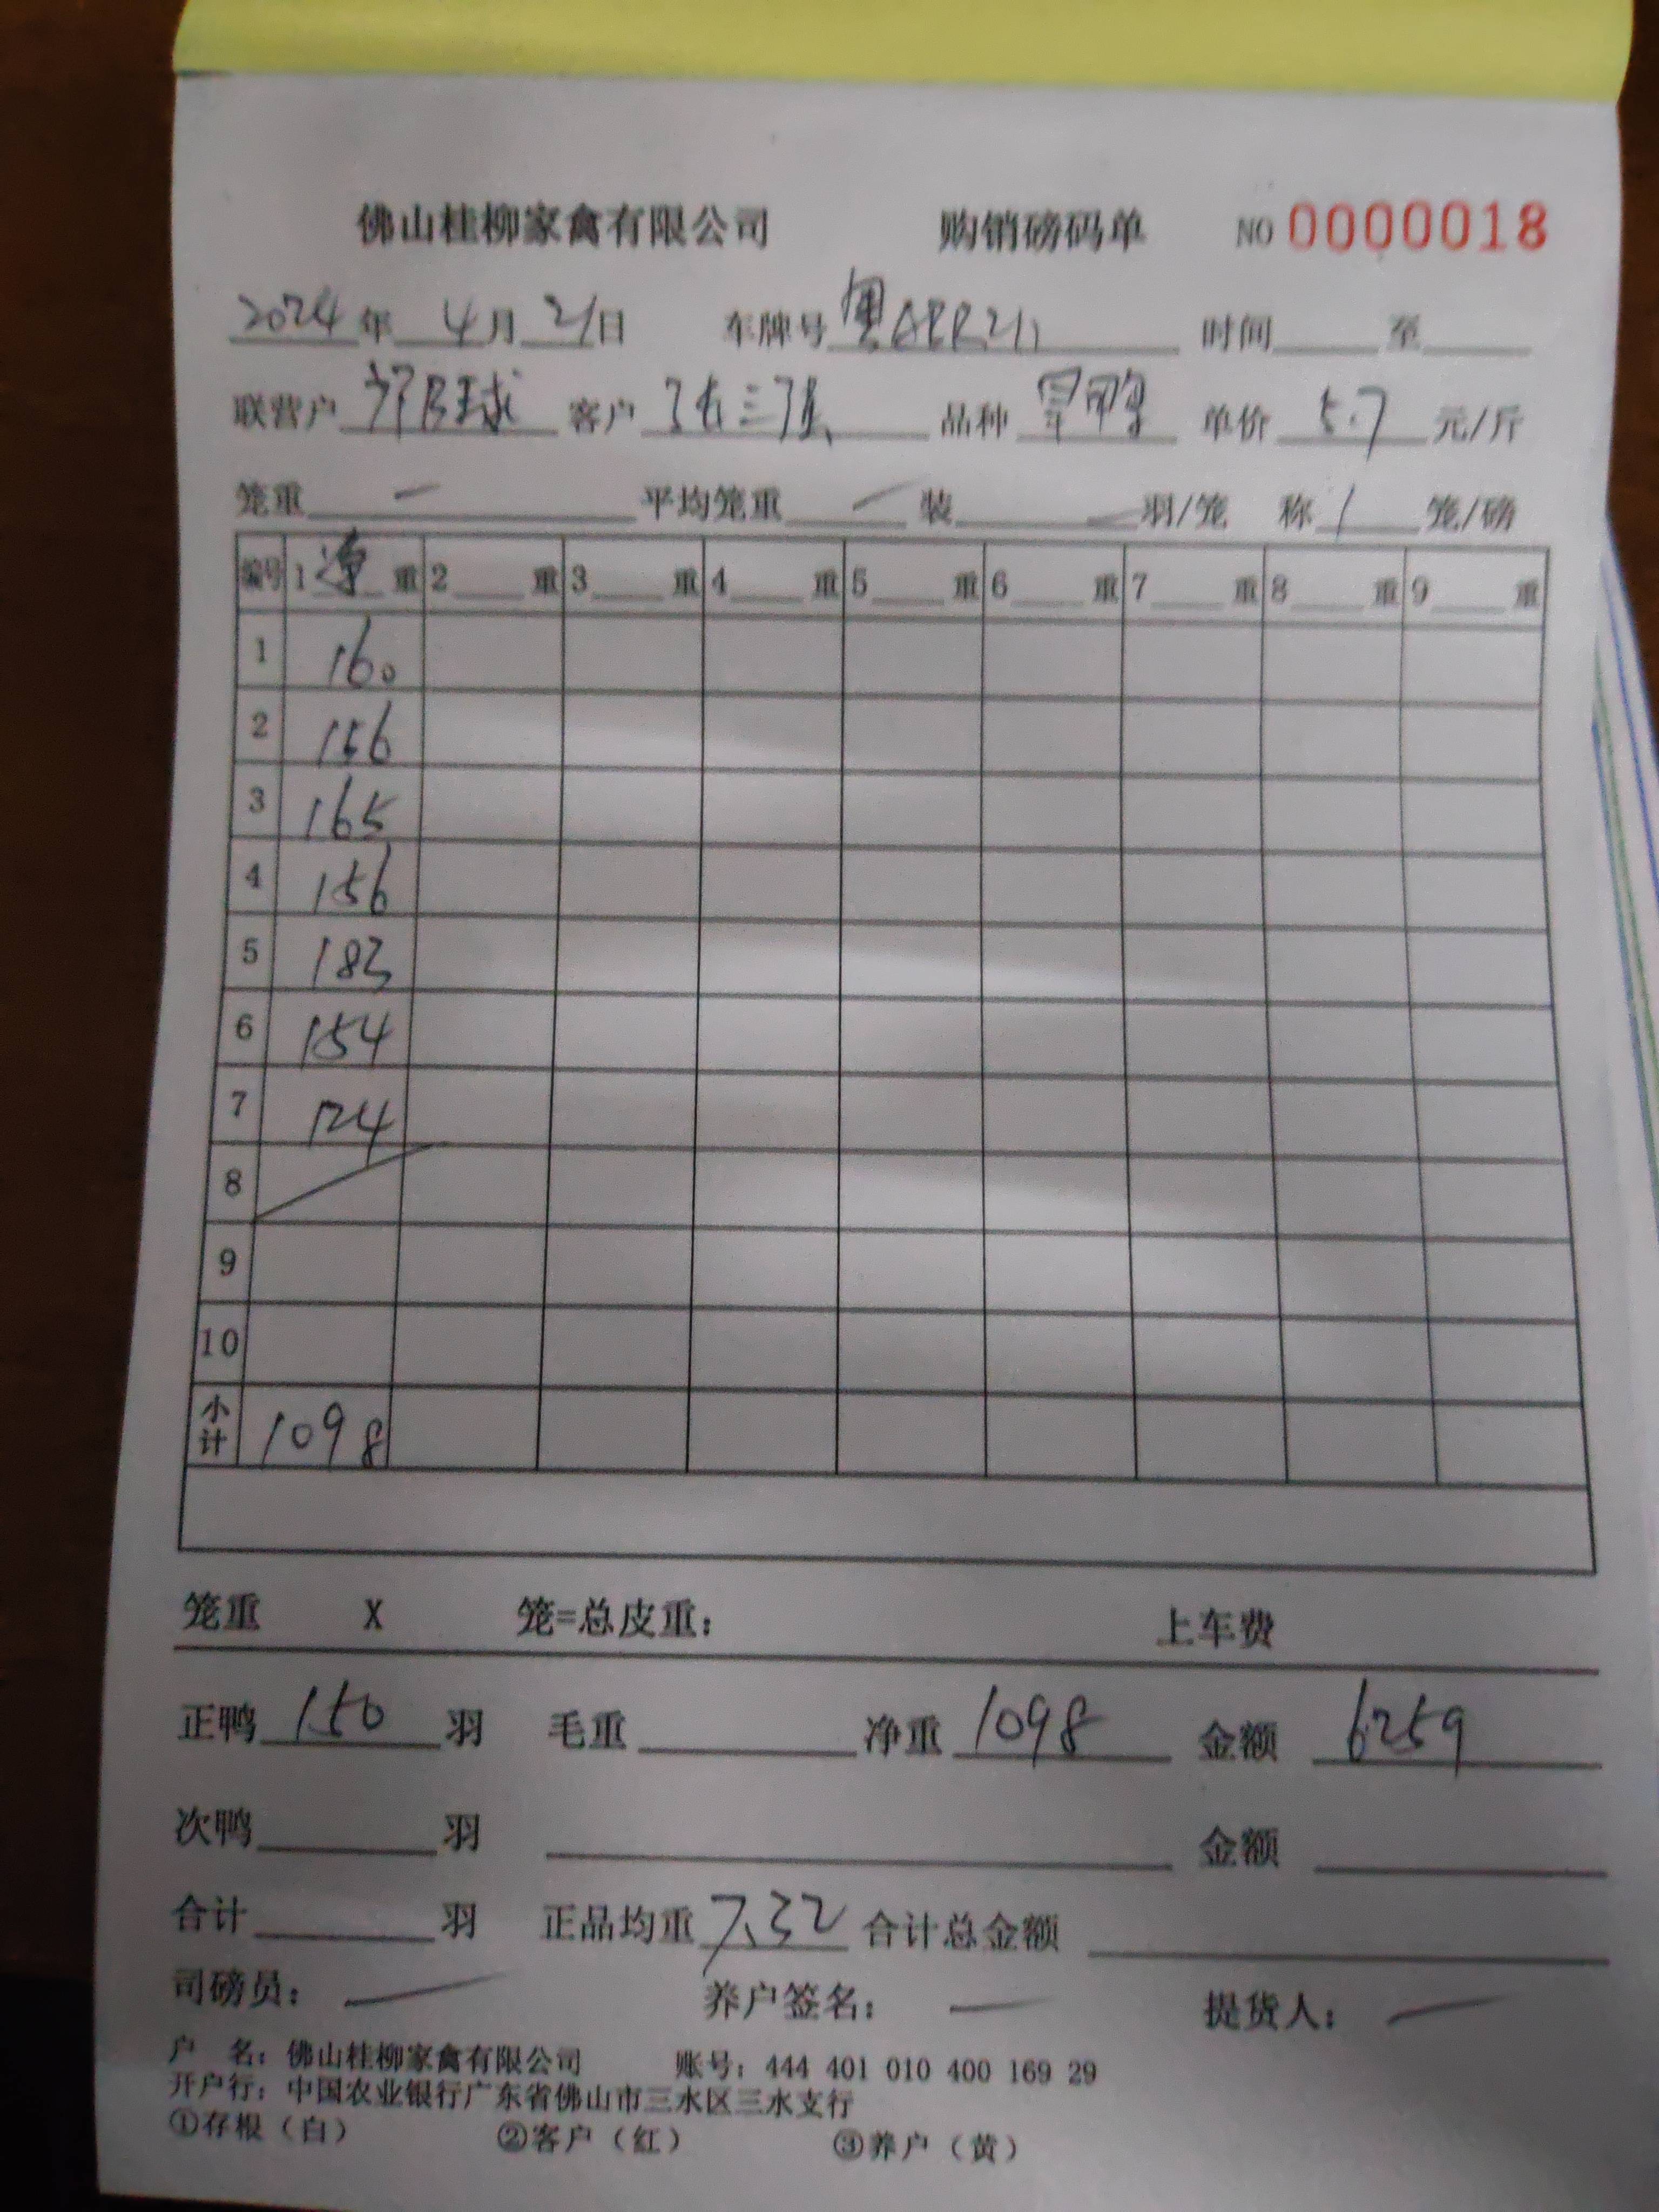 佛山桂柳家禽有限公司 购销磅码单 NO 0000018
2024年 4月 21日 车牌号 时间 至
联营户 球 客户 张三 品种 鸭 单价 5.7 元/斤
笼重 一 平均笼重 一 装 一 羽/笼 称 1 笼/磅
编号 1 净 重 2 重 3 重 4 重 5 重 6 重 7 重 8 重 9 重
1 160
2 156
3 165
4 156
5 183
6 154
7 124
8
9
10
小计 1098
笼重 X 笼=总皮重: 上车费
正鸭 150 羽 毛重 净重 1098 金额 6259
次鸭 羽 金额
合计 羽 正品均重 7.32 合计总金额
司磅员: 养户签名: 提货人:
户 名: 佛山桂柳家禽有限公司 账号: 444 401 010 400 169 29
开户行: 中国农业银行广东省佛山市三水区三水支行
①存根（白） ②客户（红） ③养户（黄）